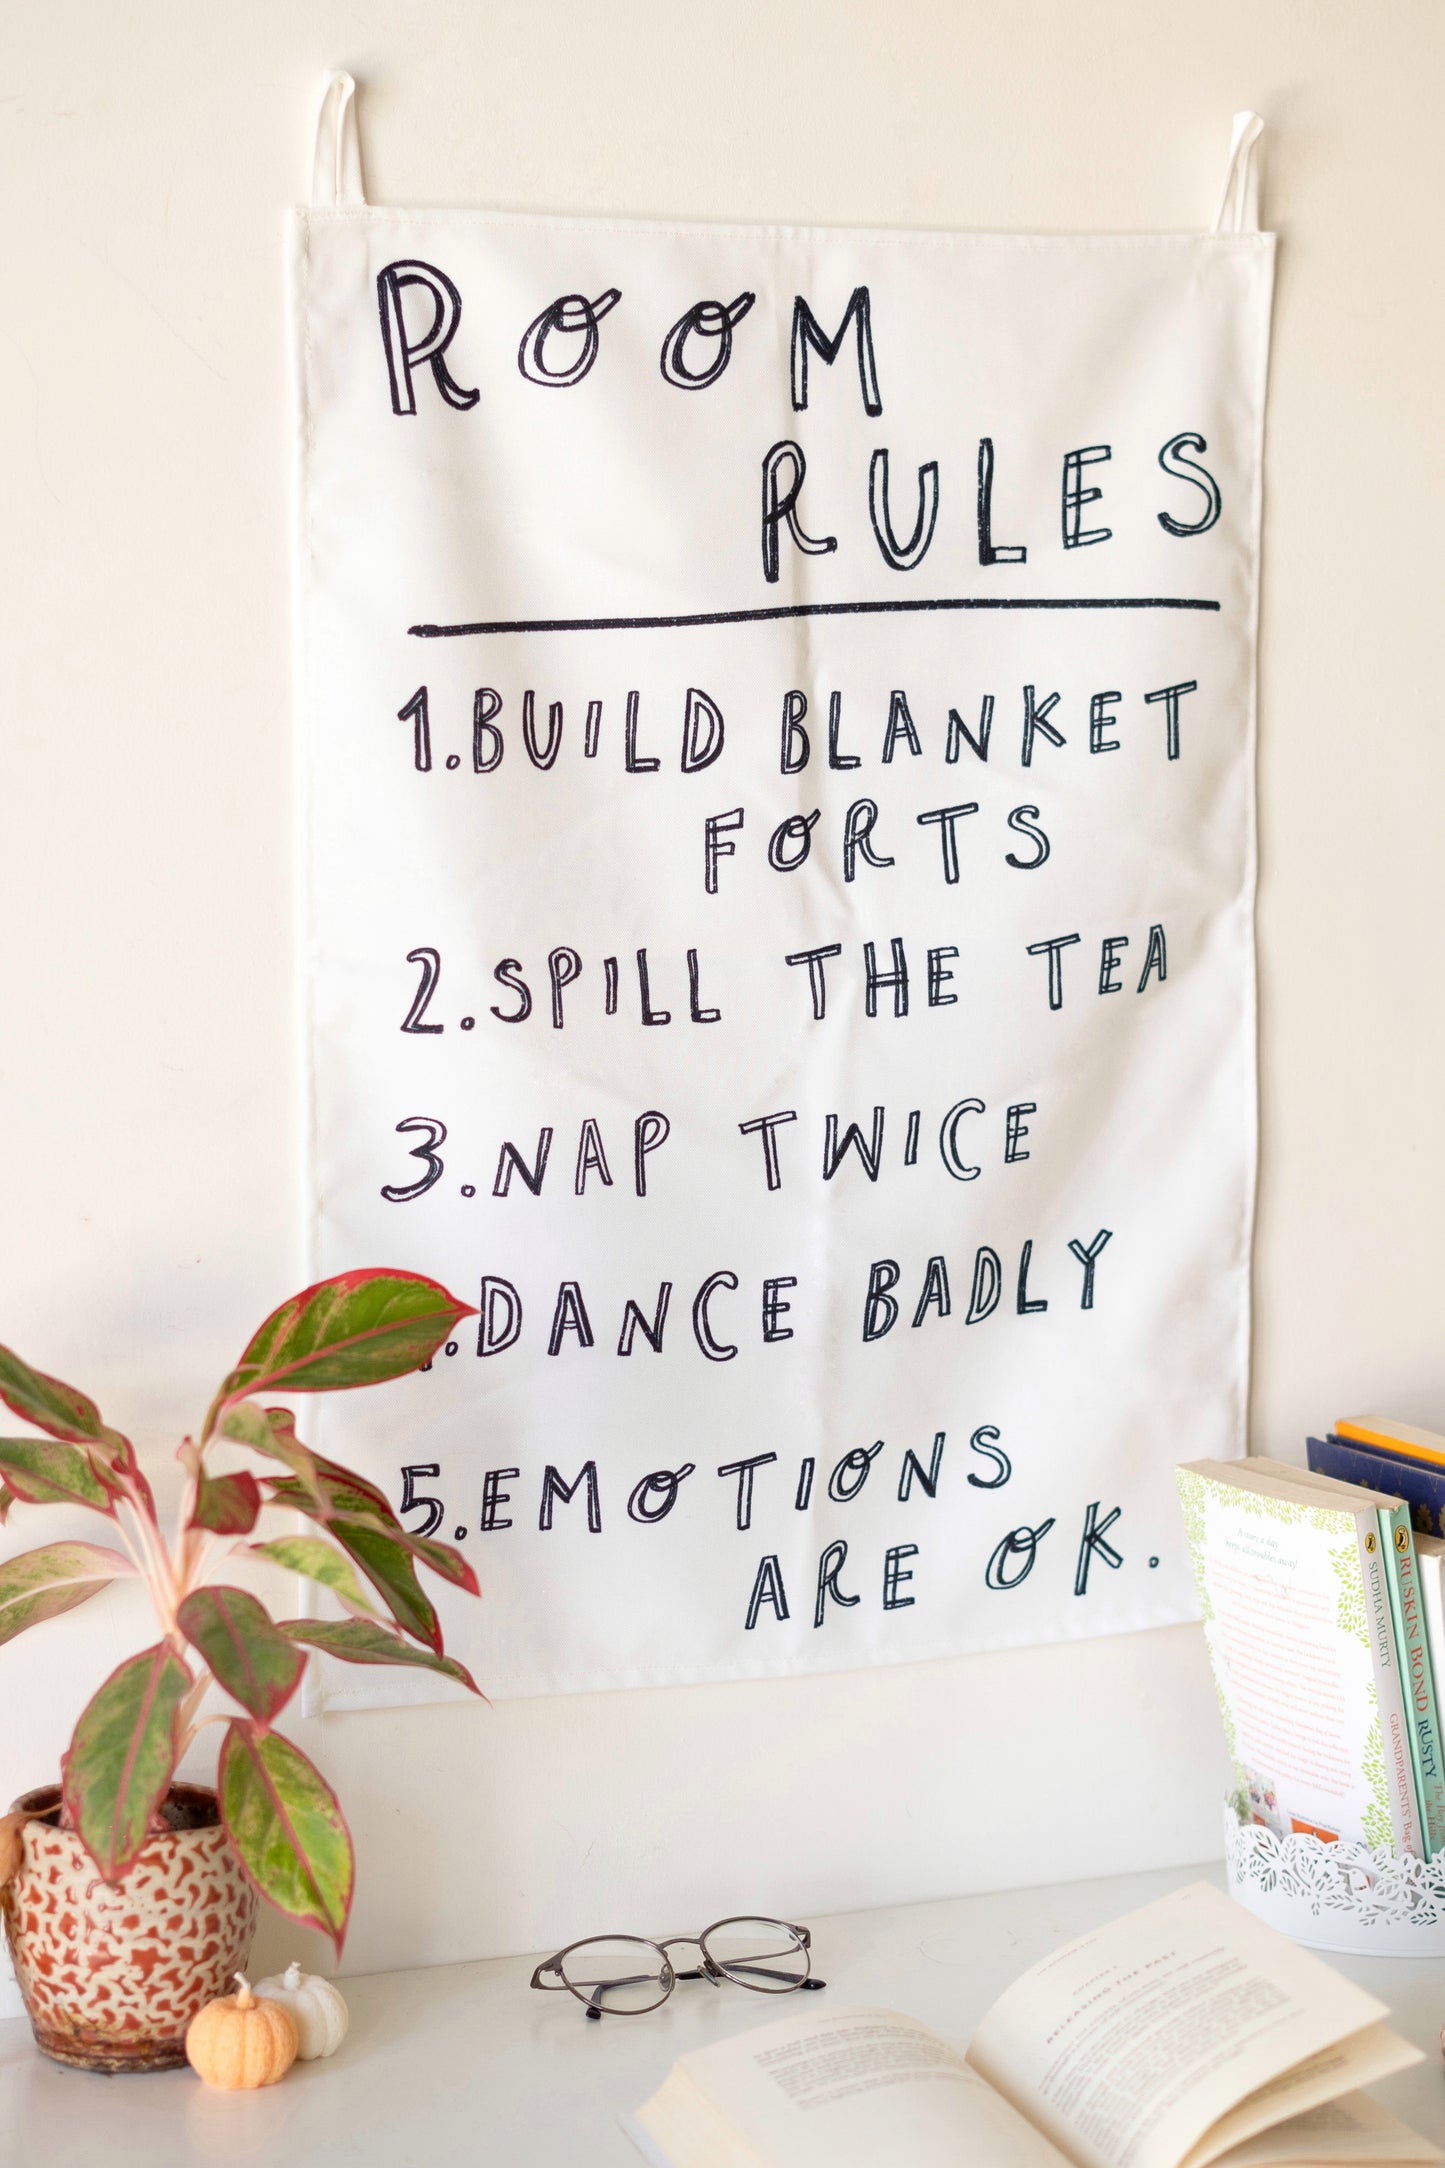 ROOM
RULES
1.BUILD BLANKET
FORTS
2.SPILL THE TEA
3.NAP TWICE
.DANCE BADLY
5.EMOTIONS
ARE OK.
A story a day
keeps all troubles away!
SUDHA MURTY GRANDPARENTS' Bag of
RUSKIN BOND RUSTY
CHAPTER 1
RELEASING THE PAST